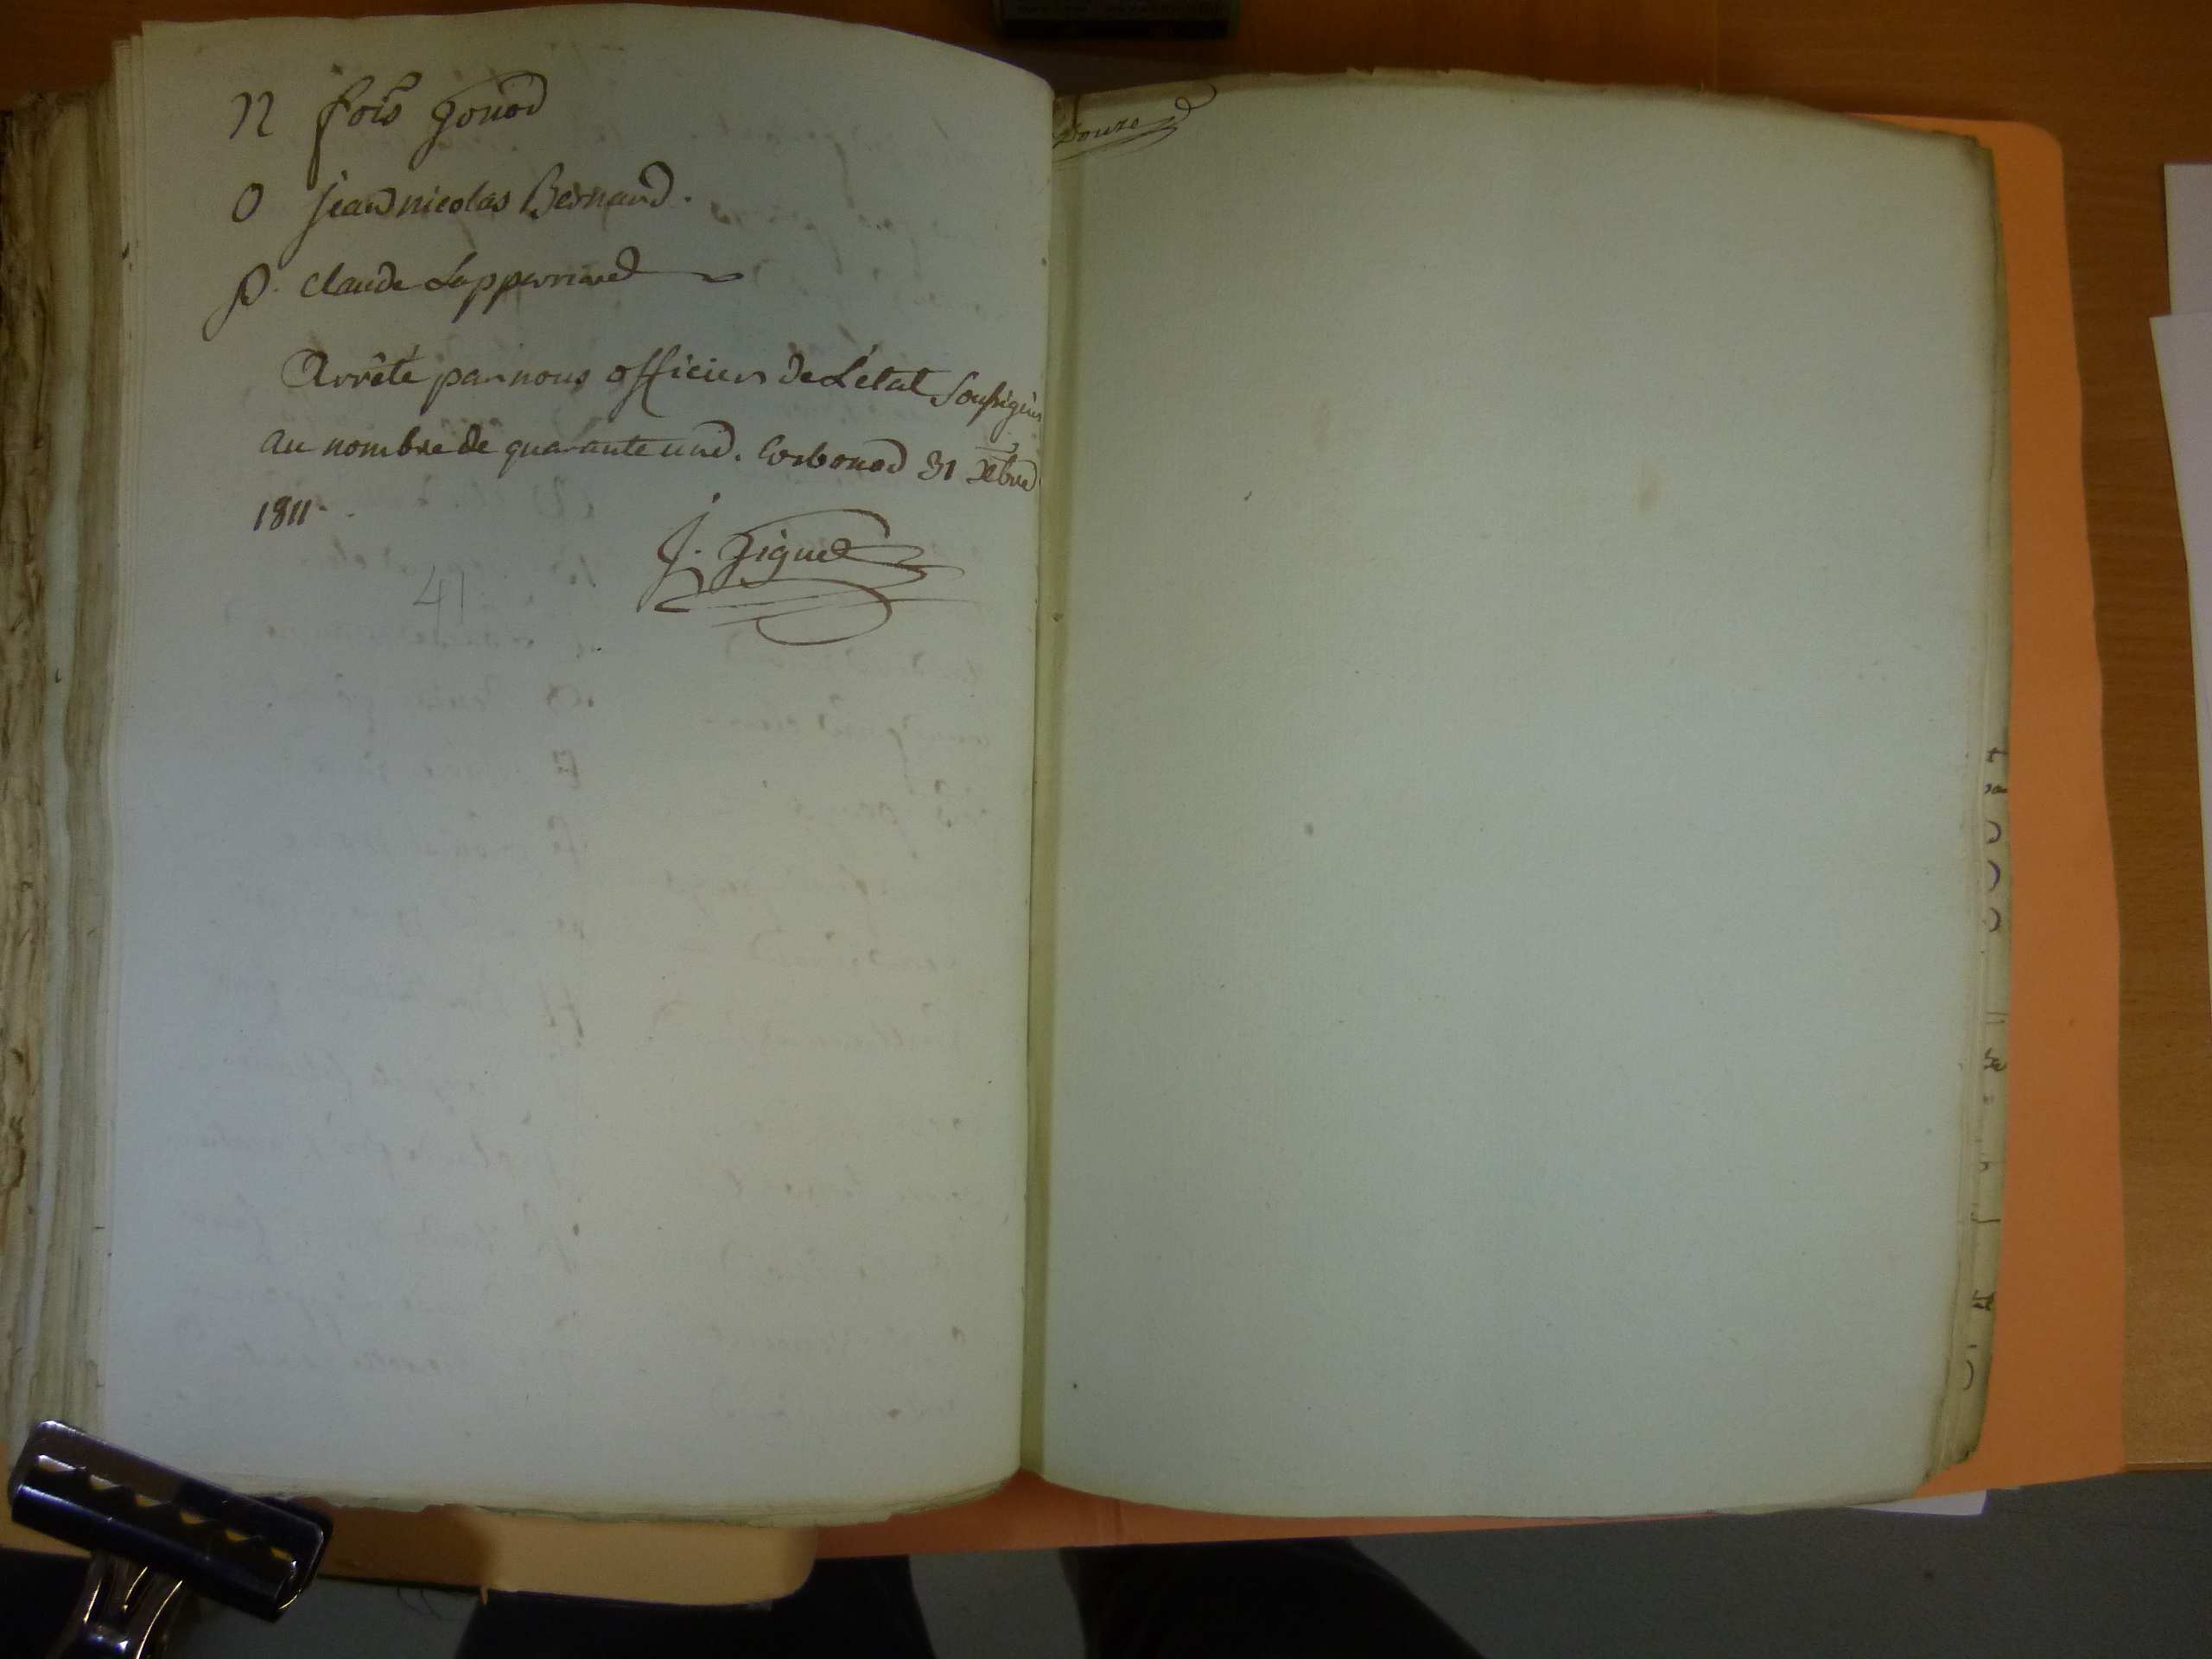 n fois gonod
O jean nicolas Bernard.
p. claude Lapperriere
Arrêté par nous officier de L'état Soussigné
au nombre de quarante un. Corbonod 31 Xbre
1811.
J. Gignet
41
Douze